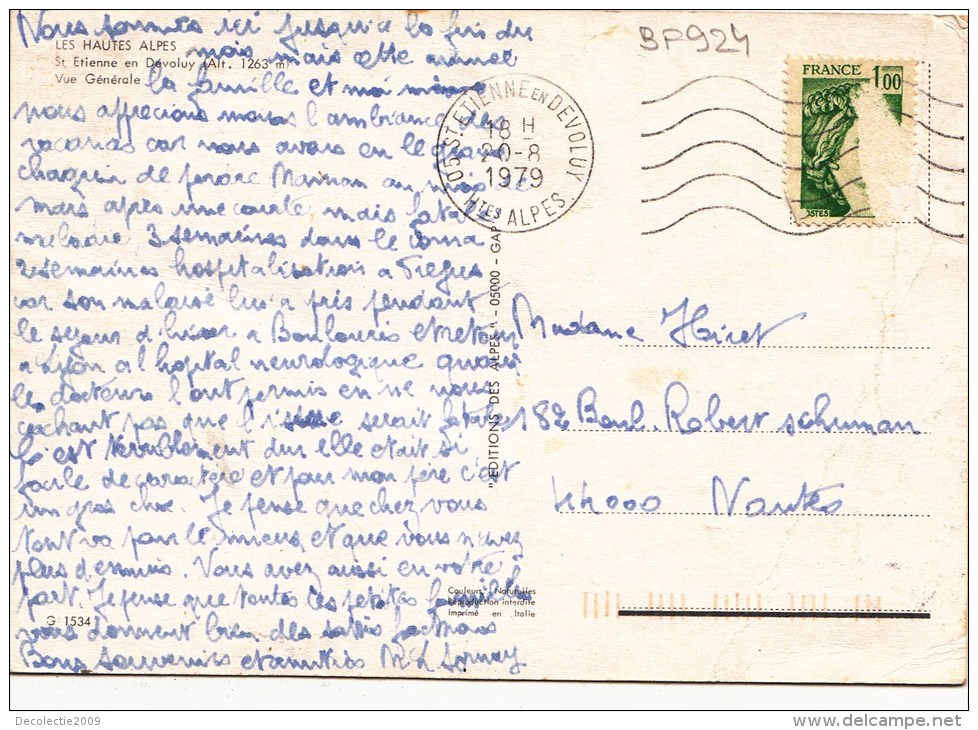 BP924
LES HAUTES ALPES
St Etienne en Dévoluy (Alt. 1263 m)
Vue Générale
FRANCE 1.00
OSTES
05 ST ETIENNE EN DEVOLUY
18 H
20-8
1979
HTES ALPES
Nous sommes ici jusqu'à la fin du
mois mais cette année
la famille et moi même
nous apprecions moins l'ambiance des
vacances car nous avons eu le grand
chagrin de perdre Maman au mois de
mars apres une courte mais fatale
maladie 3 semaines dans le coma
2 semaines hospitalisation a Frejus
car son malaise lui a pris pendant
le sejour d'hiver a Boulouris et retour
a Lyon a l'hopital neurologique quand
les docteurs l'ont permis en ne nous
cachant pas que l'issue serait fatale
C'est terriblement dur elle etait si
facile de caractère et pour mon père c'est
un gros choc. Je pense que chez vous
tout va pour le mieux et que vous n'avez
plus d'ennuis. Vous avez aussi eu votre
part. Je pense que toutes les petites familles
vous donnent bien des satisfactions
Bons souvenirs et amitiés M L
Madame Hiret
182 Boul. Robert schuman
44000 Nantes
"EDITIONS DES ALPES" - 05000 - GAP
Couleurs Naturelles
Reproduction interdite
Imprimé en Italie
G 1534
Decolectie2009
delcampe.net